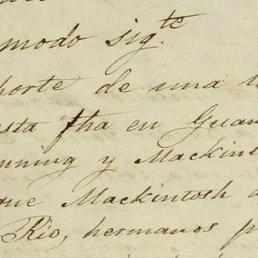 modo sig.te
porte de una
esta fha en Guan
nning y Mackint
que Mackintosh
Rio, hermanos p